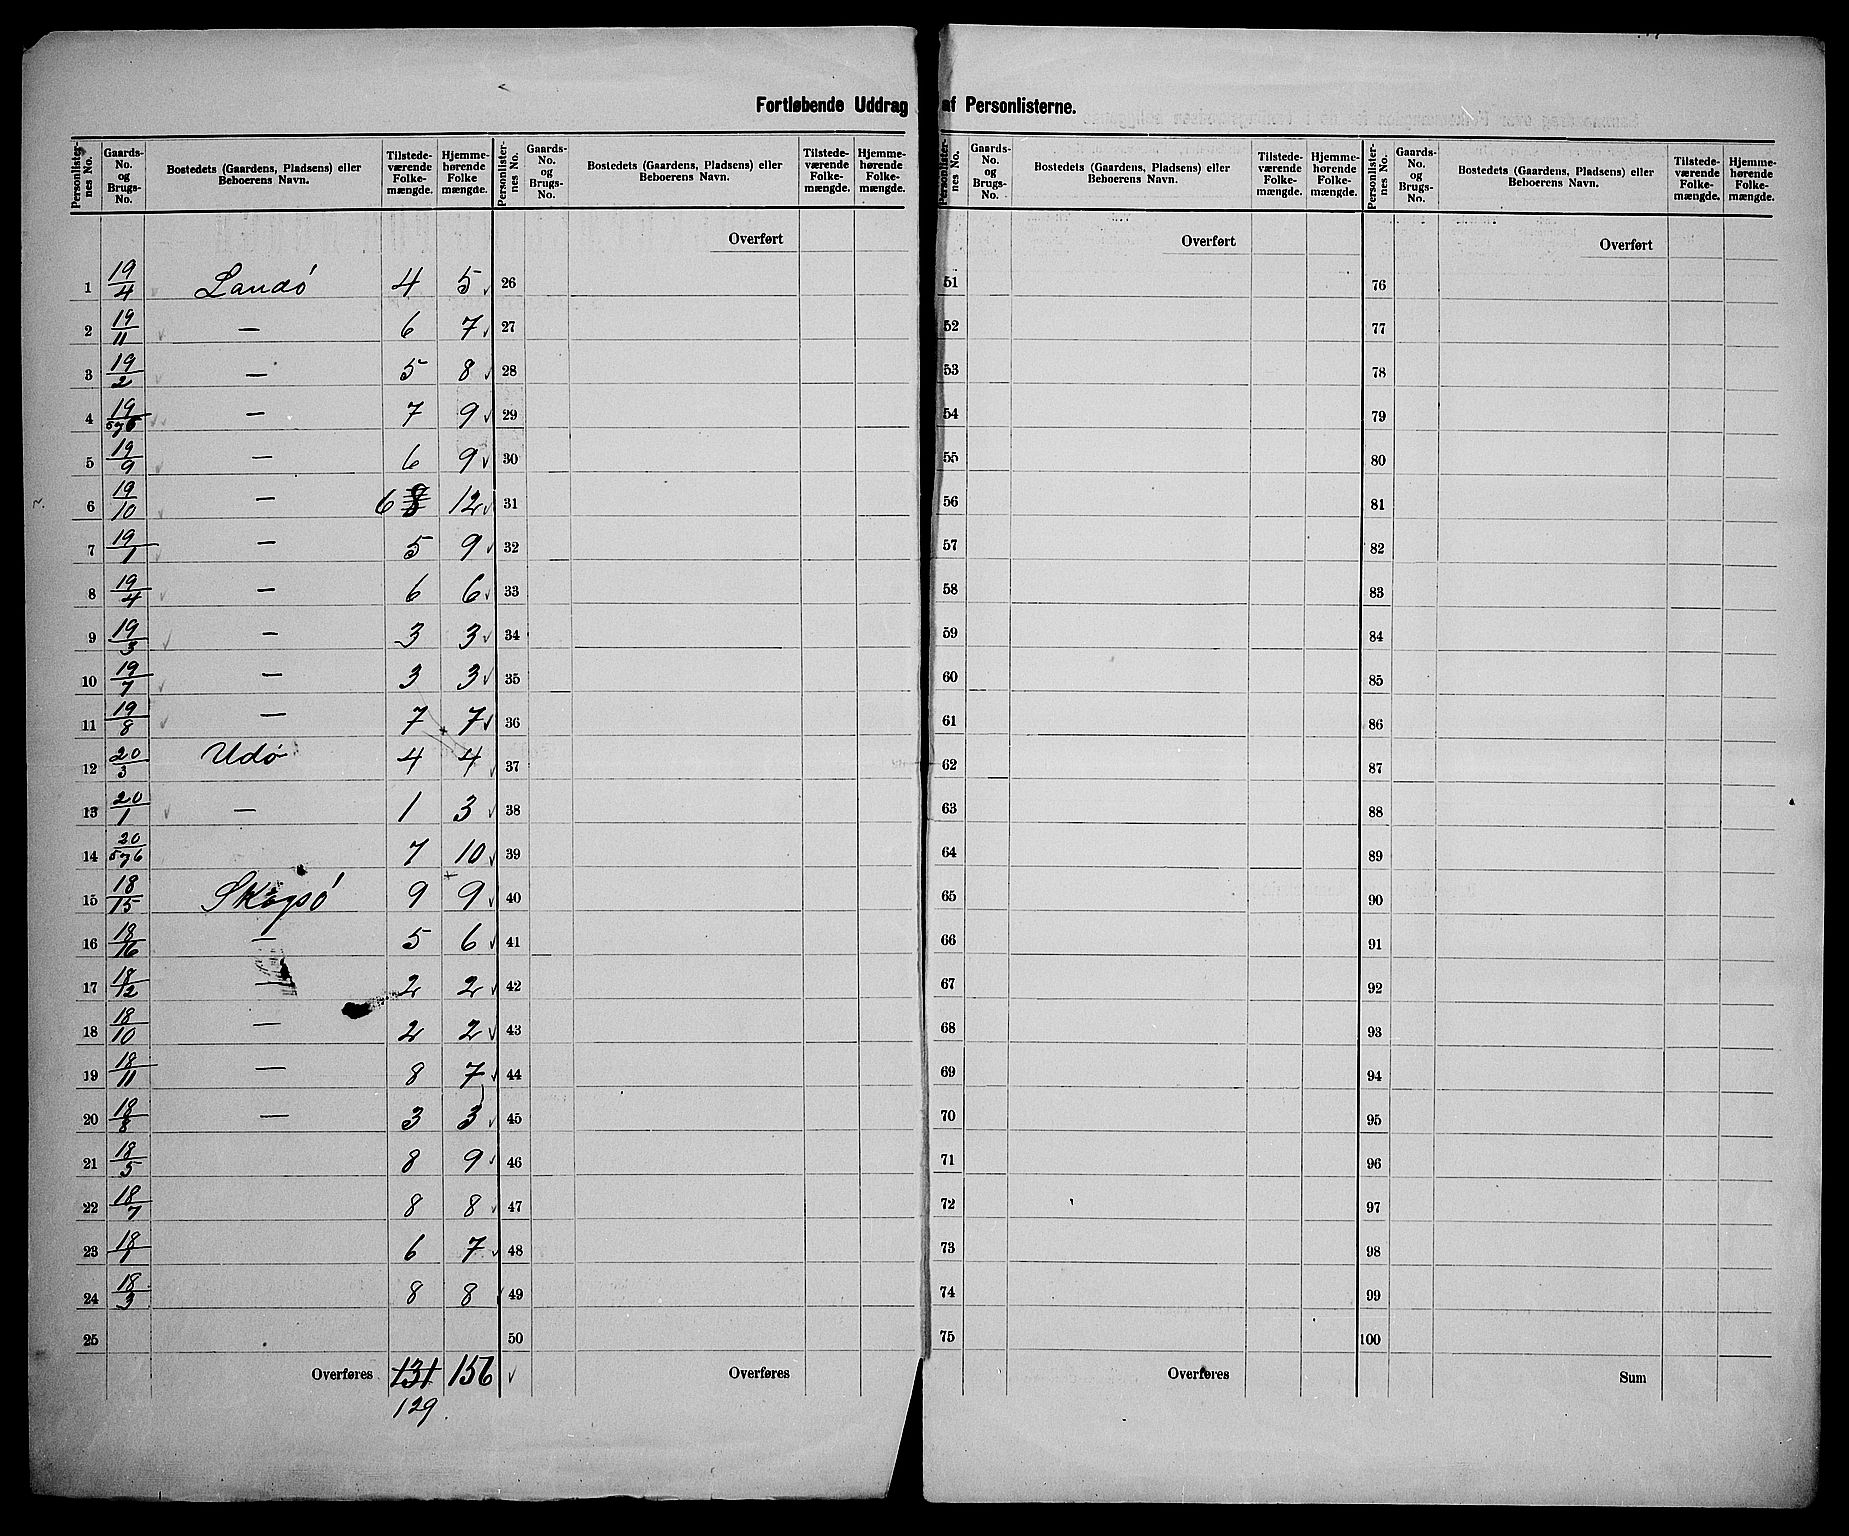 Fortløbende Uddrag af Personlisterne.
Personlister- nes No. | Gaards- No. og Brugs- No. | Bostedets (Gaardens, Pladsens) eller Beboerens Navn. | Tilstede- værende Folke- mængde. | Hjemme- hørende Folke mængde. | Personlister- nes No. | Gaards- No. og Brugs- No. | Bostedets (Gaardens, Pladsens) eller Beboerens Navn. | Tilstede- værende Folke- mængde. | Hjemme- hørende Folke- mængde. | Personlister- nes No. | Gaards- No. og Brugs- No. | Bostedets (Gaardens, Pladsens) eller Beboerens Navn. | Tilstede- værende Folke- mængde. | Hjemme- hørende Folke- mængde. | Personlister- nes No. | Gaards- No. og Brugs- No. | Bostedets (Gaardens, Pladsens) eller Beboerens Navn. | Tilstede- værende Folke- mængde. | Hjemme- hørende Folke- mængde.
Overført Overført Overført
1 19/4 Landö 4 5 26 51 76
2 19/11 — 6 7 27 52 77
3 19/2 — 5 8 28 53 78
4 19/5 7 6 — 7 9 29 54 79
5 19/9 — 6 9 30 55 80
6 19/10 — 6 8 12 31 56 81
7 19/1 — 5 9 32 57 82
8 19/4 — 6 6 33 58 83
9 19/3 — 3 3 34 59 84
10 19/7 — 3 3 35 60 85
11 19/8 — 7 7 36 61 86
12 20/3 Udö 4 4 37 62 87
13 20/1 — 1 3 38 63 88
14 20/5 7 6 7 10 39 64 89
15 18/15 Skogsö 9 9 40 65 90
16 18/16 — 5 6 41 66 91
17 18/12 — 2 2 42 67 92
18 18/10 — 2 2 43 68 93
19 18/11 — 8 7 44 69 94
20 18/8 — 3 3 45 70 95
21 18/5 8 9 46 71 96
22 18/7 8 8 47 72 97
23 18/1 6 7 48 73 98
24 18/3 8 8 49 74 99
25 50 75 100
Overføres 131 156 Overføres Overføres Sum
129